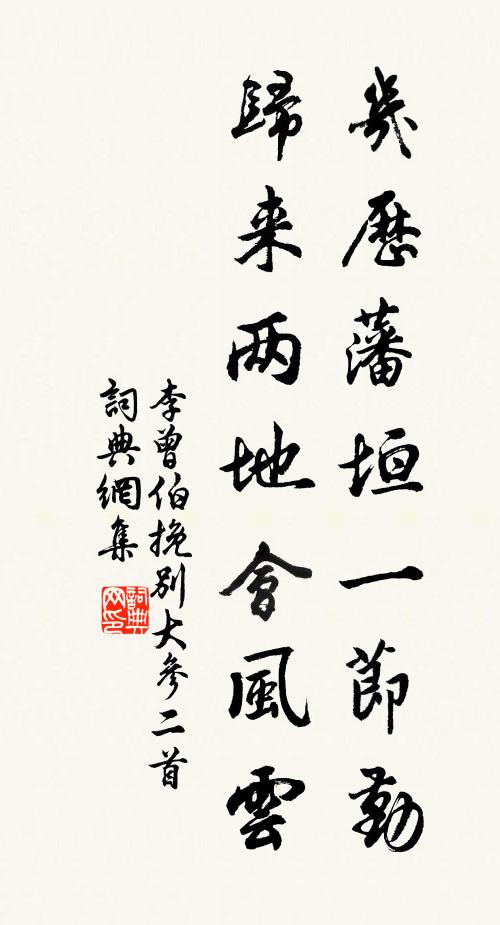 幾歷藩垣一節勤
歸来兩地會風雲
李曾伯挽別大參二首
詞典網集
詞典网印